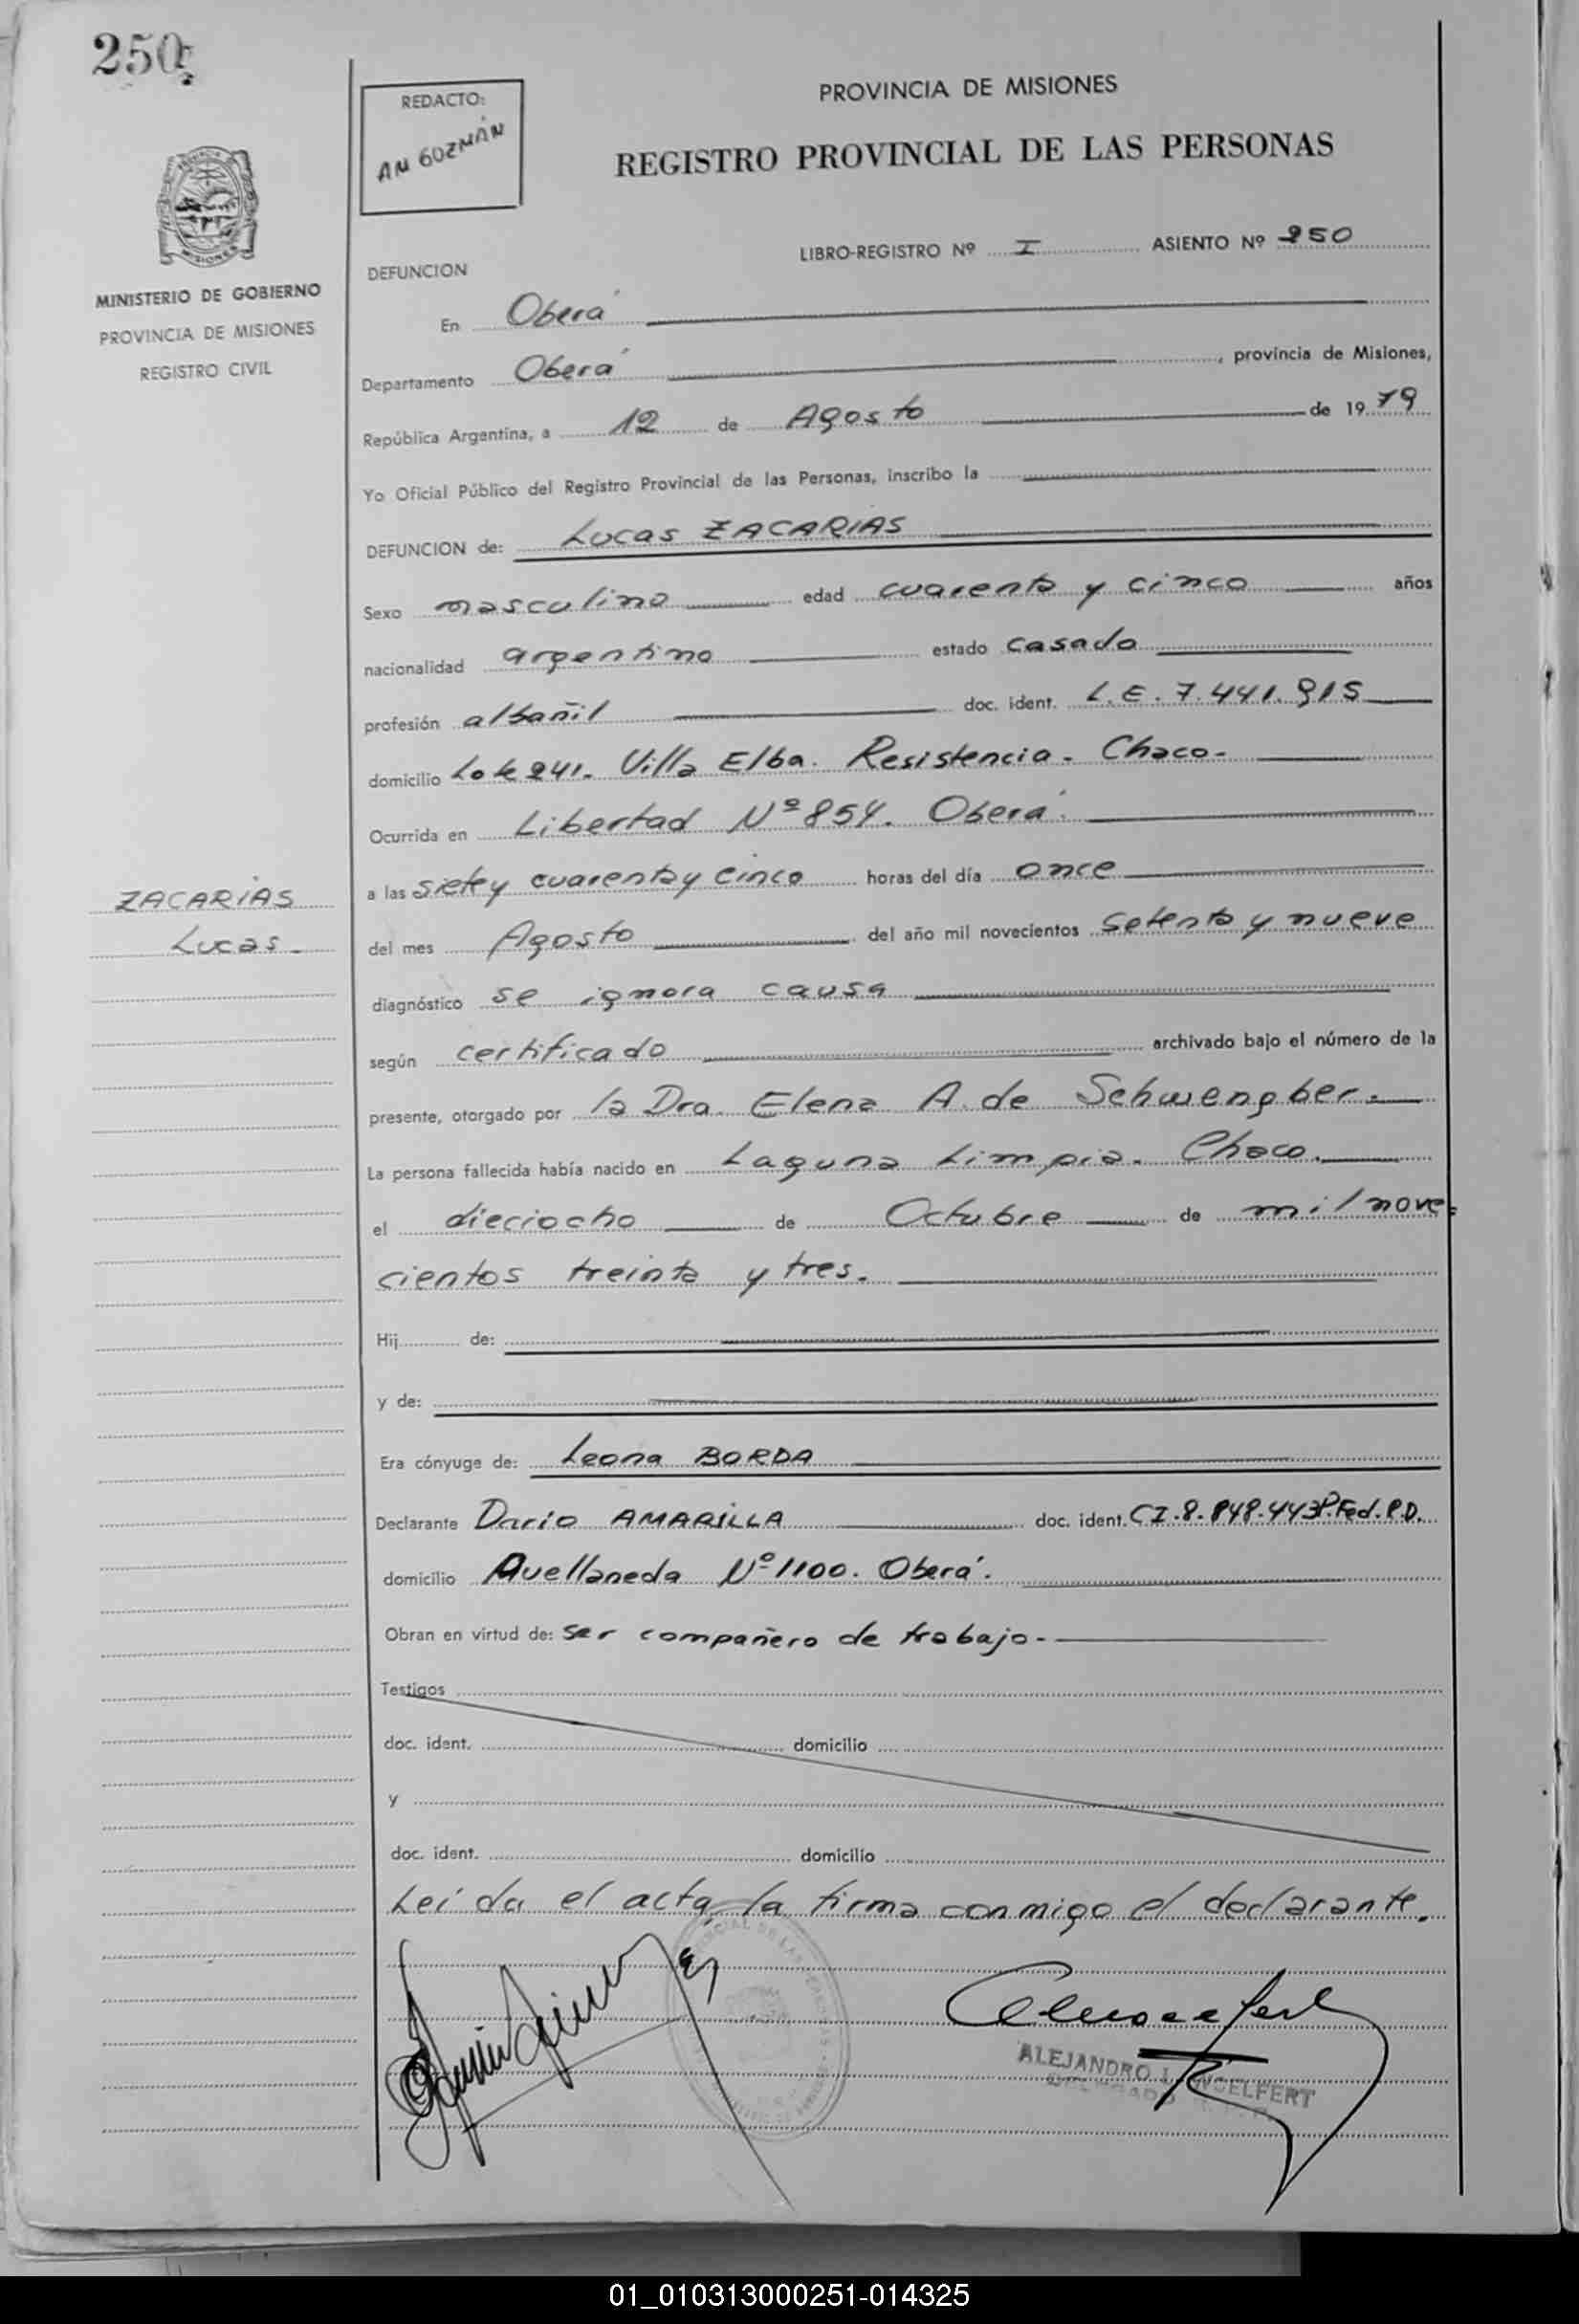 250
REDACTO:
AM GUZMÁN
PROVINCIA DE MISIONES
REGISTRO PROVINCIAL DE LAS PERSONAS
MISIONES
MINISTERIO DE GOBIERNO
PROVINCIA DE MISIONES
REGISTRO CIVIL
LIBRO-REGISTRO Nº I ASIENTO Nº 250
DEFUNCION
En Oberá
Departamento Oberá , provincia de Misiones,
República Argentina, a 12 de Agosto de 1979
Yo Oficial Público del Registro Provincial de las Personas, inscribo la
DEFUNCION de: Lucas ZACARIAS
Sexo masculino edad cuarenta y cinco años
nacionalidad argentino estado casado
profesión albañil doc. ident. L.E. 7.441.915
domicilio Lote 241. Villa Elba. Resistencia - Chaco-
Ocurrida en Libertad Nº 854. Oberá.
a las siete y cuarenta y cinco horas del día once
ZACARIAS
Lucas.
del mes Agosto del año mil novecientos setenta y nueve
diagnóstico se ignora causa
según certificado archivado bajo el número de la
presente, otorgado por la Dra. Elena A. de Schwengber.
La persona fallecida había nacido en Laguna Limpia. Chaco.
el dieciocho de Octubre de mil nove-
cientos treinta y tres.
Hij de:
y de:
Era cónyuge de: Leona BORDA
Declarante Dario AMARILLA doc. ident. CI.8.848.443P.Fed.P.D.
domicilio Avellaneda Nº 1100. Oberá.
Obran en virtud de: ser compañero de trabajo-
Testigos
doc. ident. domicilio
y
doc. ident. domicilio
Leída el acta, la firma conmigo el declarante.
ALEJANDRO WOELFERT
01_010313000251-014325